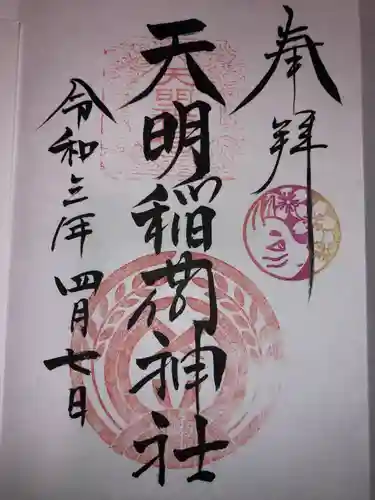 奉拝
天明稲荷神社
令和三年四月七日